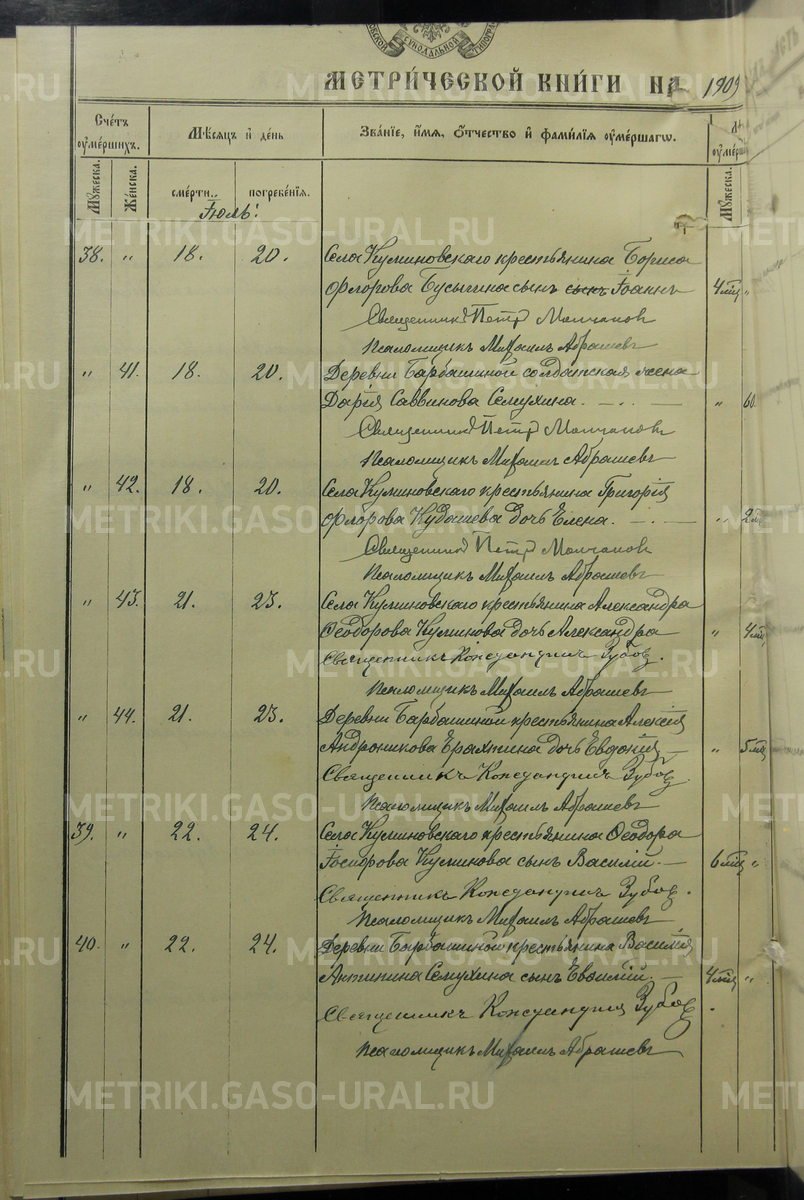 МЕТРИ́ЧЕСКОЙ КНИ́ГИ НА 1909
Сче́тъ оуме́ршихъ.
Мѣсяцъ и де́нь
Зва́нїе, и́мя, о́тчество и фами́лїя оуме́ршагѡ.
Мужеска.
Женска.
сме́рти.
погребе́нїя.
Мужеска.
Іюль!
38. " 18. 20. Села Куминовскаго крестьянина Бориса
Флорова Бусыгина сынъ Іоаннъ 4 мѣс "
Священникъ Петр Молчановъ
Псаломщикъ Михаилъ Абрашевъ
" 41. 18. 20. Деревни Барбашиной солдатская жена
Дарія Саввинова Семухина. " 60.
Священникъ Петр Молчановъ
Псаломщикъ Михаилъ Абрашевъ
" 42. 18. 20. Села Куминовскаго крестьянина Григорія
Флорова Кудашева дочь Елена. "
Священникъ Петр Молчановъ
Псаломщикъ Михаилъ Абрашевъ
" 43. 21. 23. Села Куминовскаго крестьянина Александра
Ѳеодорова Куминова дочь Александра " 4 мѣс
Священникъ Константинъ Зубов.
Псаломщикъ Михаилъ Абрашевъ
" 44. 21. 23. Деревни Барбашиной крестьянина Алексія
Андроникова дочь Евдокія " 5 мѣс
Священникъ Константинъ Зубов.
Псаломщикъ Михаилъ Абрашевъ
39. " 22. 24. Села Куминовскаго крестьянина Ѳеодора
Куминова сынъ Василій. 6 мѣс "
Священникъ Константинъ Зубов.
Псаломщикъ Михаилъ Абрашевъ
40. " 22. 24. Деревни Барбашиной крестьянина Василія
Антипина Семухина сынъ 4 мѣс "
Священникъ Константинъ Зубов.
Псаломщикъ Михаилъ Абрашевъ
METRIKI.GASO-URAL.RU